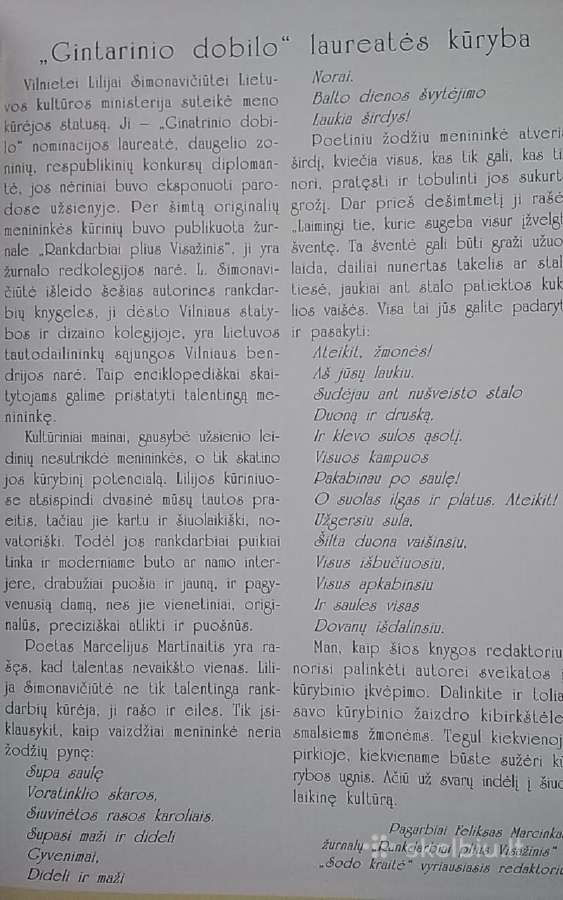 „Gintarinio dobilo“ laureatės kūryba
Vilnietei Lilijai Simonavičiūtei Lietu-
vos kultūros ministerija suteikė meno
kūrėjos statusą. Ji – „Ginatrinio dobi-
lo“ nominacijos laureatė, daugelio zo-
ninių, respublikinių konkursų diploman-
tė, jos nėriniai buvo eksponuoti paro-
dose užsienyje. Per šimtą originalių
menininkės kūrinių buvo publikuota žur-
nale „Rankdarbiai plius Visažinis“, ji yra
žurnalo redkolegijos narė. L. Simonavi-
čiūtė išleido šešias autorines rankdar-
bių knygeles, ji dėsto Vilniaus staty-
bos ir dizaino kolegijoje, yra Lietuvos
tautodailininkų sąjungos Vilniaus ben-
drijos narė. Taip enciklopediškai skai-
tytojams galime pristatyti talentingą me-
nininkę.
Kultūriniai mainai, gausybė užsienio lei-
dinių nesutrikdė menininkės, o tik skatino
jos kūrybinį potencialą. Lilijos kūriniuo-
se atsispindi dvasinė mūsų tautos pra-
eitis, tačiau jie kartu ir šiuolaikiški, no-
vatoriški. Todėl jos rankdarbiai puikiai
tinka ir moderniame buto ar namo inter-
jere, drabužiai puošia ir jauną, ir pagy-
venusią damą, nes jie vienetiniai, origi-
nalūs, preciziškai atlikti ir puošnūs.
Poetas Marcelijus Martinaitis yra ra-
šęs, kad talentas nevaikšto vienas. Lili-
ja Simonavičiūtė ne tik talentinga rank-
darbių kūrėja, ji rašo ir eiles. Tik įsi-
klausykit, kaip vaizdžiai menininkė neria
žodžių pynę:
Supa saulę
Voratinklio skaros,
Siuvinėtos rasos karoliais.
Supasi maži ir dideli
Gyvenimai,
Dideli ir maži
Norai.
Balto dienos švytėjimo
Laukia širdys!
Poetiniu žodžiu menininkė atveria
širdį, kviečia visus, kas tik gali, kas ti
nori, pratęsti ir tobulinti jos sukurt
grožį. Dar prieš dešimtmetį ji rašė
„Laimingi tie, kurie sugeba visur įžvelgt
šventę. Ta šventė gali būti graži užuo
laida, dailiai nunertas takelis ar stal
tiesė, jaukiai ant stalo patiektos kuk
lios vaišės. Visa tai jūs galite padaryt
ir pasakyti:
Ateikit, žmonės!
Aš jūsų laukiu.
Sudėjau ant nušveisto stalo
Duoną ir druską,
Ir klevo sulos ąsotį.
Visuos kampuos
Pakabinau po saulę!
O suolas ilgas ir platus. Ateikit!
Užgersiu sula,
Šilta duona vaišinsiu,
Visus išbučiuosiu,
Visus apkabinsiu
Ir saules visas
Dovanų išdalinsiu.
Man, kaip šios knygos redaktoriu
norisi palinkėti autorei sveikatos i
kūrybinio įkvėpimo. Dalinkite ir tolia
savo kūrybinio žaizdro kibirkštėle
smalsiems žmonėms. Tegul kiekvienoj
pirkioje, kiekviename būste sužėri kū
rybos ugnis. Ačiū už svarų indėlį į šiuo
laikinę kultūrą.
Pagarbiai Feliksas Marcinka
žurnalų „Rankdarbiai plius Visažinis“
„Sodo kraitė“ vyriausiasis redaktoriu
skelbiu.lt